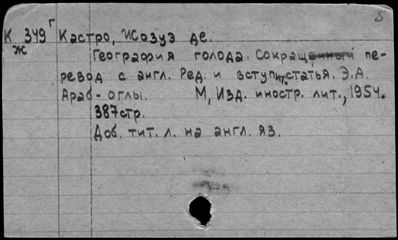 К 349г Кастро, Жозуэ де.
ж
География голода. Сокращенный пе-
ревод с англ. Ред. и вступит. статья. Э.А.
Араб-оглы. М, Изд. иностр. лит., 1954.
387стр.
Доб. тит. л. на англ. яз.